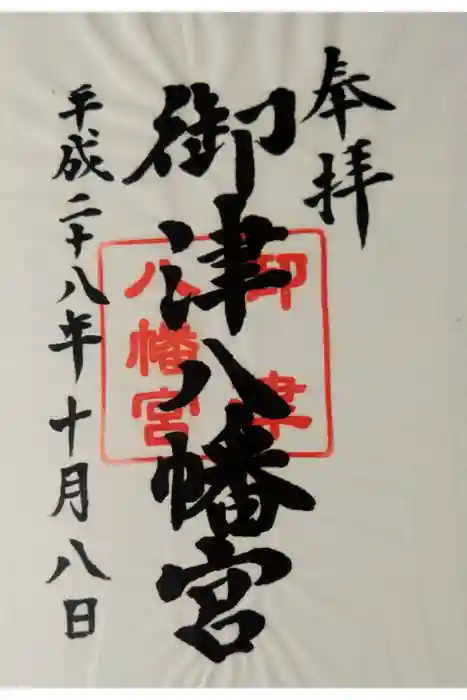 奉拝
御津八幡宮
御津
八幡宮
平成二十八年十月八日